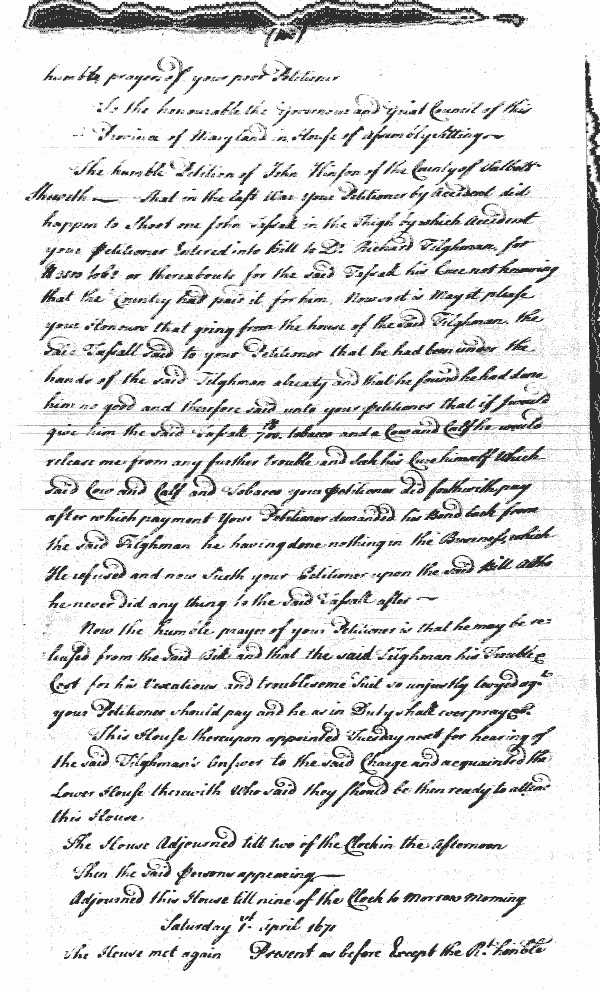 humble prayer of your poor Petitioner
To the honourable the Governour and Great Council of this
Province of Maryland in House of Assembly Sitting
The humble Petition of John Hinson of the County of Talbott
Sheweth That in the last War your Petitioner by Accident did
happen to Shoot one John Tassall in the Thigh by which Accident
your Petitioner Entered into Bill to Dr. Richard Tilghman, for
lbs or thereabouts for the said Tassall his Cure not knowing
that the Country had paid it for him. Now so it is May it please
your Honours that going from the house of the said Tilghman, the
said Tassall said to your Petitioner that he had been under the
hands of the said Tilghman already and that he found he had done
him no good and therefore said unto your Petitioner that if I would
give him the said Tassall 700 tobacco and a Cow and Calf he would
release me from any further trouble and Seek his Cure himself Which
said Cow and Calf and Tobacco your Petitioner did forthwith pay
after which payment Your Petitioner demanded his Bond back from
the said Tilghman he having done nothing in the Business, which
He refused and now Sueth your Petitioner upon the said Bill altho
he never did any thing to the said Tassall after
Now the humble prayer of your Petitioner is that he may be re-
leased from the said Bill and that the said Tilghman his Trouble
Cost for his Vexatious and troublesome Suit so unjustly leveyed agt
your Petitioner should pay and he as in Duty shall ever pray &c.
This House thereupon appointed Tuesday next for hearing of
the said Tilghman's Answer to the said Charge and acquainted the
Lower House therewith Who said they should be then ready to attend
this House
The House Adjourned till two of the Clock in the Afternoon
Then the said Persons appearing
Adjourned this House till nine of the Clock to Morrow Morning
Saturday 1st. April 1671
The House met again Present as before Except the Rt. honble